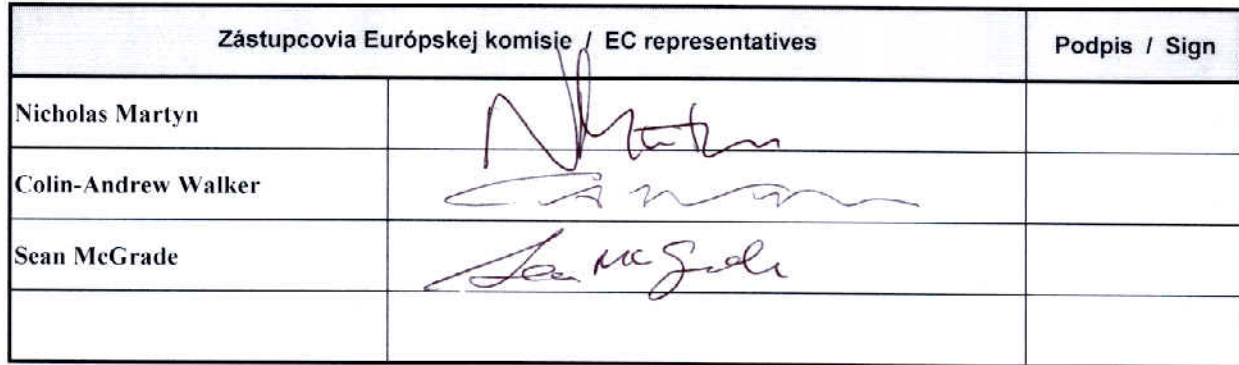 Zástupcovia Európskej komisie / EC representatives Podpis / Sign
Nicholas Martyn
Colin-Andrew Walker
Sean McGrade Sean McGrade